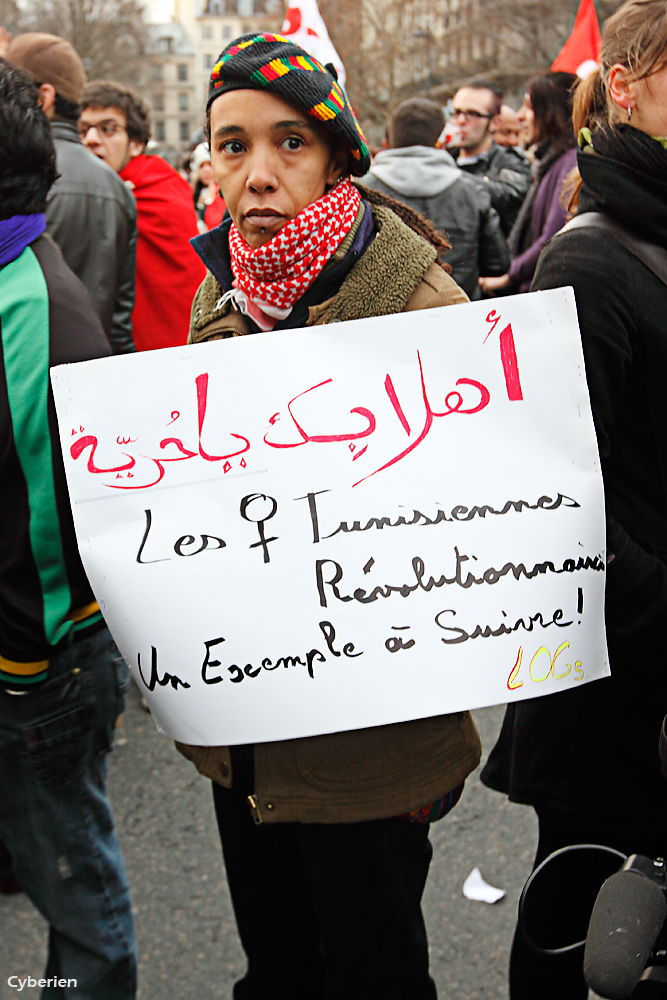 أهلا بيك ياحُريّة
Les ♀ Tunisiennes
Révolutionnaires
Un Exemple à Suivre!
LOCs
Cyberien